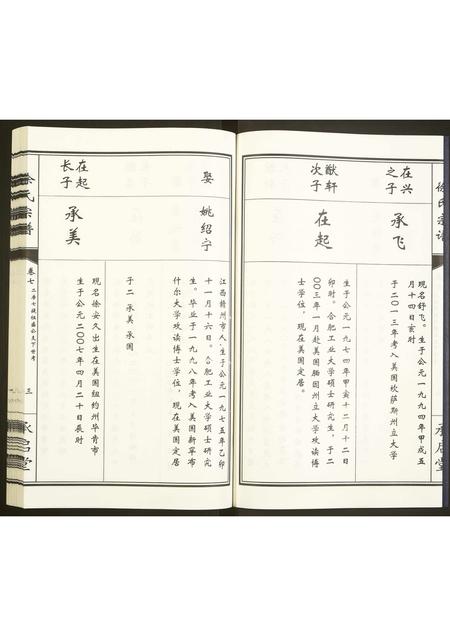 徐氏宗谱
承启堂
在兴
之子
承飞
现名舒飞。生于公元一九九四年甲戌五
月十四日亥时
于二0一三年考入美国坎萨斯州立大学
猷轩
次子
在起
生于公元一九七四年甲寅十二月十二日
卯时。合肥工业大学硕士研究生，于二
00三年一月赴美国腼因州立大学攻读博
士学位，现在美国定居。
娶
姚绍宁
江西赣州市人，生于公元一九七五年乙卯
十一月十六日。合肥工业大学硕士研究
生。毕业于一九九八年考入美国新罕布
什尔大学攻读博士学位，现在美国定居
于二 承美 承国
在起
长子
承美
现名徐安久出生在美国纽约州毕肯市
生于公元二00七年四月二十日辰时
徐氏宗谱
卷七
三
承启堂